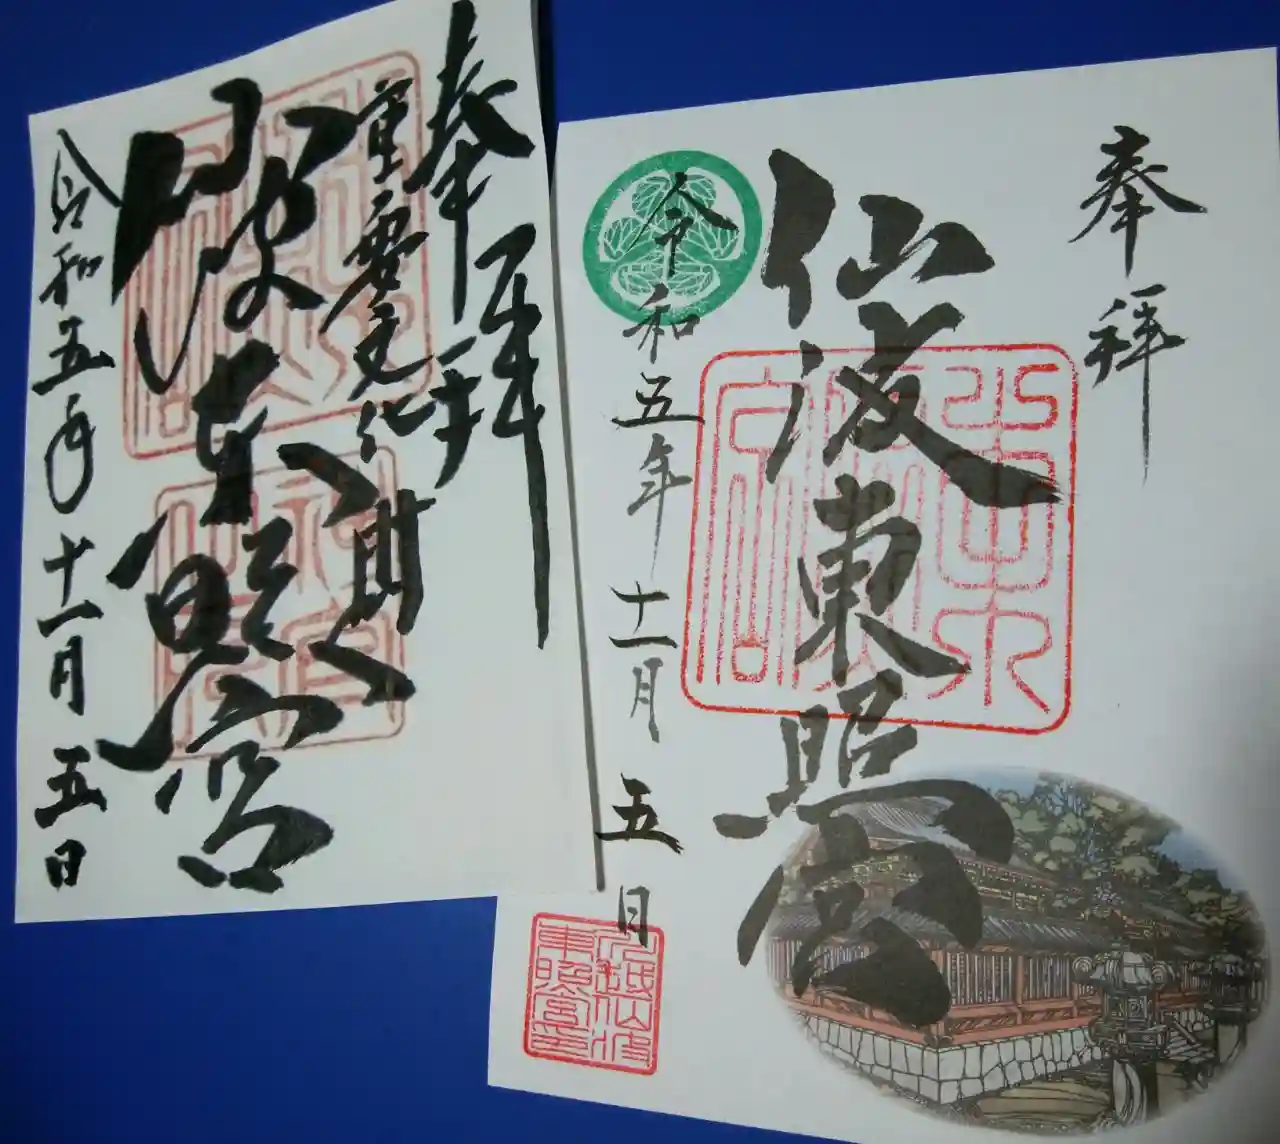 奉拝
仙波東照宮
令和五年十一月五日
川越仙波
東照宮印
奉拝
重要文化財
仙波東照宮
令和五年十一月五日